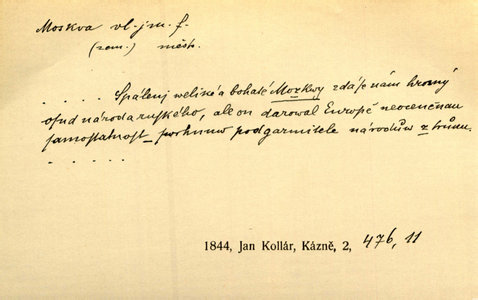 Moskva vl. jm. f.
(zem.) měst.
. . . . . Spálenj weliké a bohaté Mozkwy zdá se nám hrozný
osud národa ruského, ale on darowal Europě neoceněnau
samostatnost – swrhnuw podgarmitele národůw z trůnu.
. . . . . .
1844, Jan Kollár, Kázně, 2, 476, 11